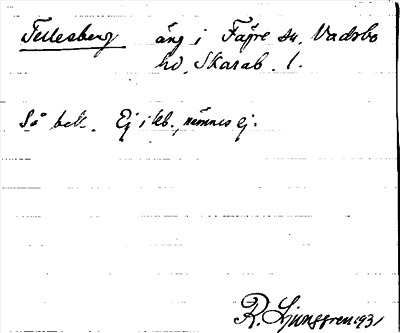 Tellesberg äng i Fägre sn. Vadsbo
hd. Skarab. l.
Så bek. Ej i kb., nämnes ej.
R. Ljunggren 1931